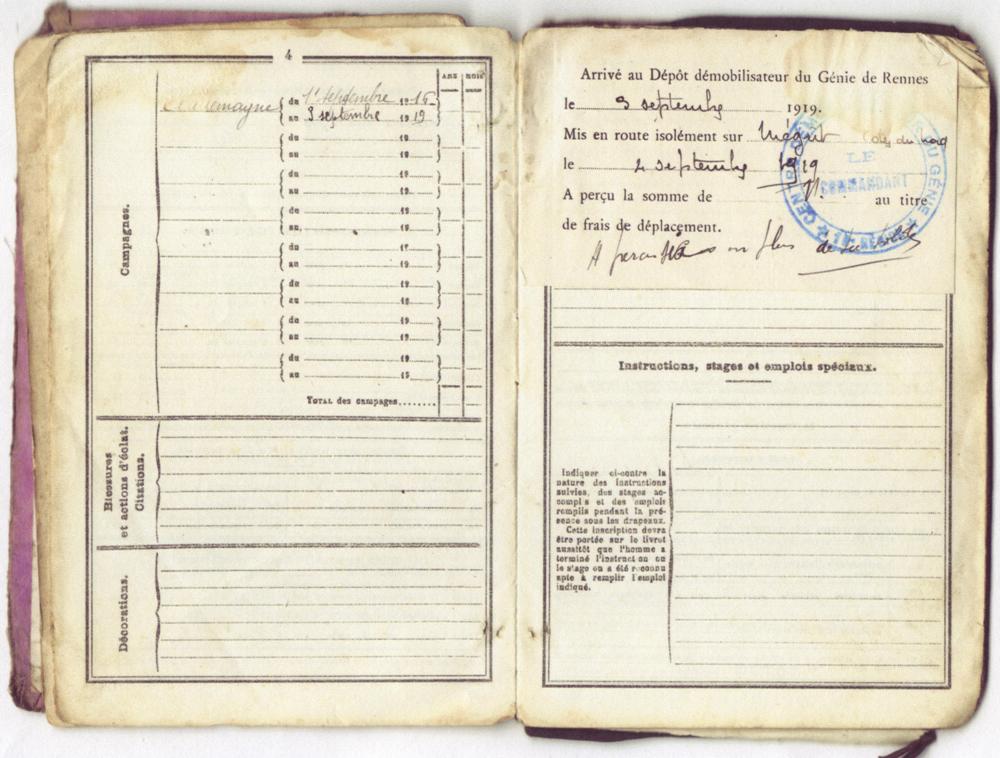 4
ANS
MOIS
Campagnes.
du 1er septembre 1916
au 3 septembre 1919
du 19
au 19
du 19
au 19
du 19
au 19
du 19
au 19
du 19
au 19
du 19
au 19
du 19
au 19
TOTAL des campages........
Blessures
et actions d'éclat.
Citations.
Décorations.
Arrivé au Dépôt démobilisateur du Génie de Rennes
le 3 septembre 1919.
Mis en route isolément sur Mégrit
le septembre 1919
A perçu la somme de au titre
de frais de déplacement.
LE
COMMANDANT
DU GÉNIE
Instructions, stages et emplois spéciaux.
Indiquer ci-contre la
nature des instructions
suivies, des stages ac-
complis et des emplois
remplis pendant la pré-
sence sous les drapeaux.
Cette inscription devra
être portée sur le livret
aussitôt que l'homme a
terminé l'instruct on ou
le stage ou a été reconnu
apte à remplir l'emploi
indiqué.